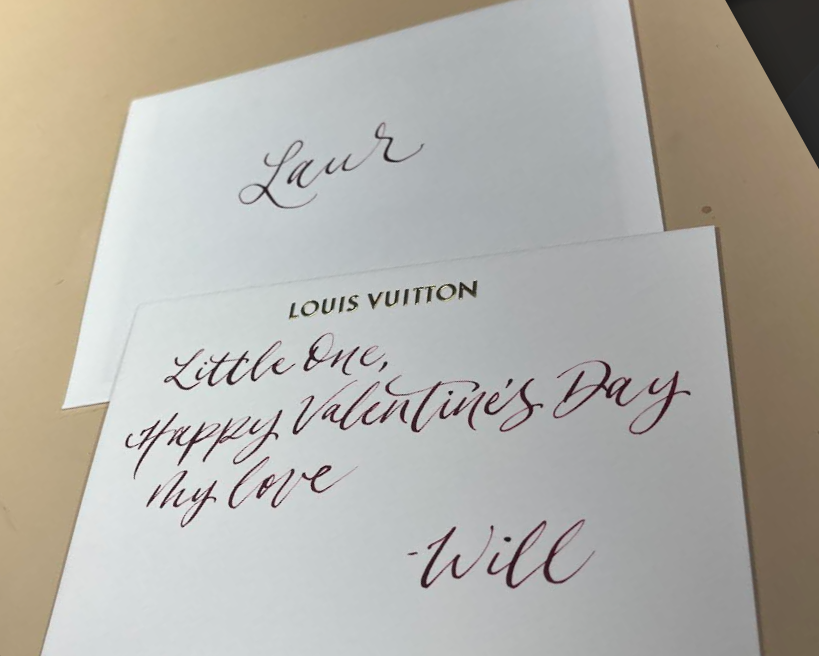 Laur
LOUIS VUITTON
Little One,
Happy Valentine's Day
my love
-Will